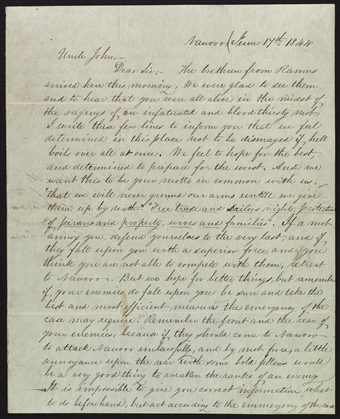 Nauvoo June 17th 1844
Uncle John,-
Dear Sir,- The brethren from Ramus
arrived here this morning; We were glad to see them
and to hear that you were all alive in the midst of
the ragings of an infatuated and blood thirsty mob.
I write these few lines to inform you that we feel
determined in this place not to be dismayed if hell
boils over all at once. We feel to hope for the best,
and determined to prepare for the worst. And we
want this to be your motto in common with us.
"that we will never ground our arms until we give
them up by death." "Free trade and sailors rights, protection
of persons and property, wives and families". If a mob
annoy you, defend yourselves to the very last; and if
they fall upon you with a superior force, and you
think you are not able to compete with them, retreat
to Nauvoo. But we hope for better things, but remember
if your enemies do fall upon you be sure and take the
best and most efficient measures the emergency of the
case may require. Remember the front and the rear of
your enemies, because if they should come to Nauvoo
to attack Nauvoo unlawfully, and by mob force, a little
annoyance upon the rear with some bold fellows would
be a very good thing to weaken the ranks of an enemy
It is impossible to give you correct information what
to do beforehand, but act according to the emergency of the case